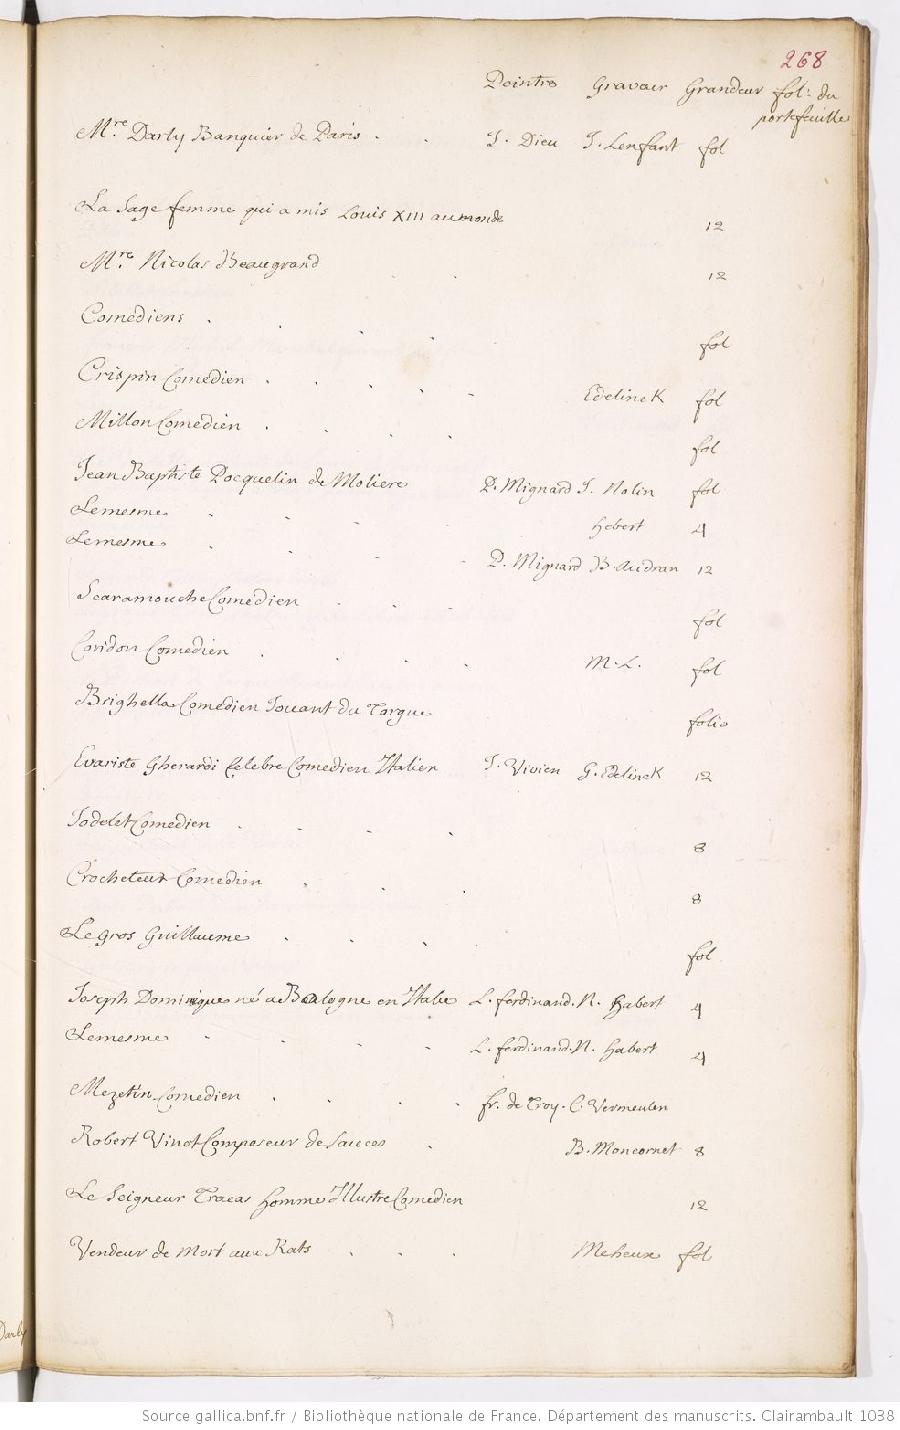 268
Peintre Graveur Grandeur fol: du
portefeuille
M.re Darly Banquier de Paris . . J. Dieu J. Lenfant fol
La Sage femme qui a mis Louis XIII au monde 12
M.re Nicolas Beaugrand . . 12
Comediens . . . . fol
Crispin Comedien . . . . . Edelinck fol
Millon Comedien . . . . fol
Jean Baptiste Pocquelin de Moliere P. Mignard J. Nolin fol
Lemesme . . . Hebert 4
Lemesme . . . . P. Mignard B. Audran 12
Scaramouche Comedien . . . fol
Coridon Comedien . . . . M. L. fol
Brighella Comedien Jouant du Torgue folio
Evariste Gherardi Celebre Comedien Italien J. Vivien G. Edelinck 12
Jodelet Comedien . . . . 8
Crocheteur Comedien . . . 8
Le gros Guillaume . . . fol
Joseph Dominique né a Boulogne en Italie L. ferdinand. N. Habert 4
Lemesme . . . . L. ferdinand. N. Habert 4
Mezetin Comedien . . . . fr. de Troy. C. Vermeulen
Robert Vinot Composeur de Sauces . B. Moncornet 8
Le Seigneur Tracas homme Illustre Comedien 12
Vendeur de Mort aux Rats . . . Meheux fol
Darly
Source gallica.bnf.fr / Bibliothèque nationale de France. Département des manuscrits. Clairambault 1038